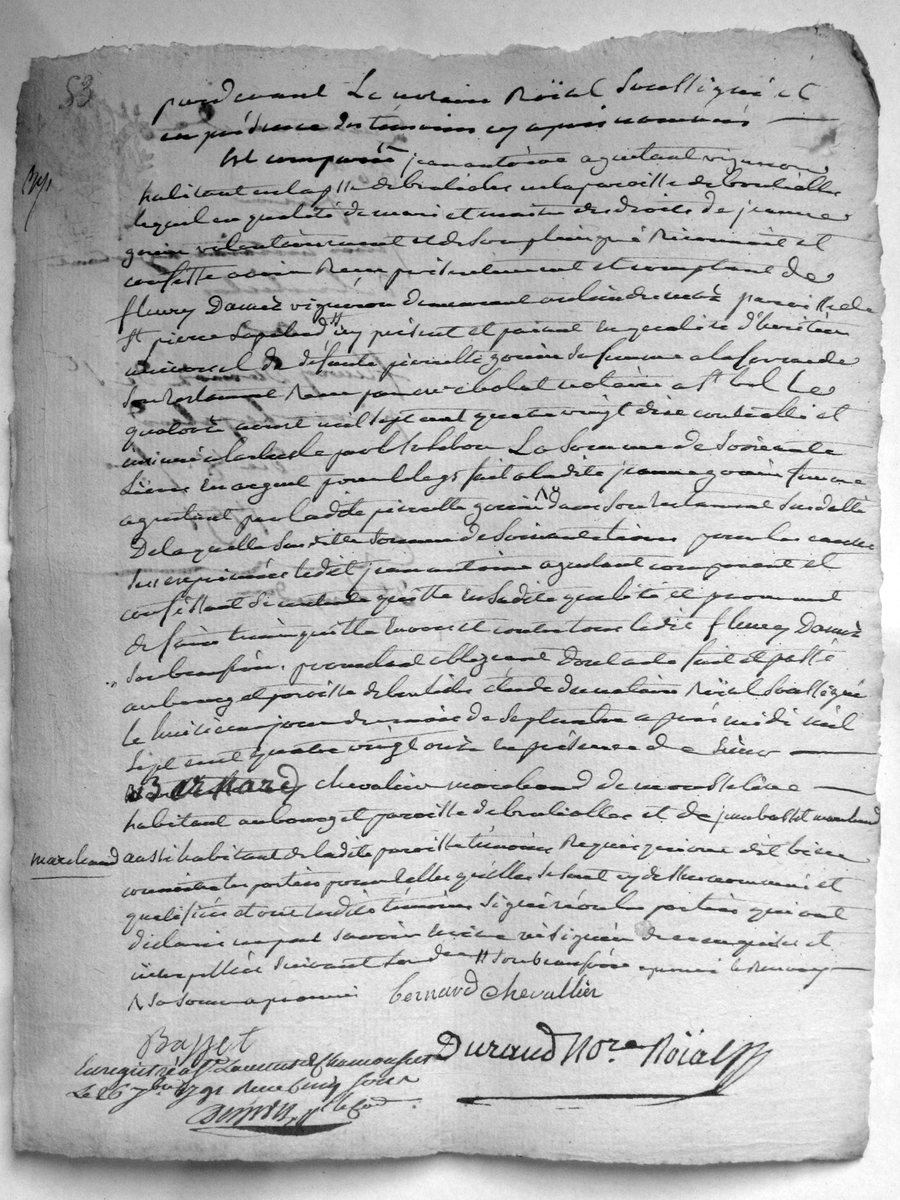 53
pardevant Le notaire Roïal Soussigné et
en présence des témoins cy apres nommés
Est comparû jean antoine aguetant vigneron
habitant en la de brulioles en la paroisse de brulliolles
lequel en qualité de mari et maitre des droits de jeanne
gonin volontairement et de son plein gré Reconnait et
confesse avoir Reçu présentement et comptant de
fleury Damés vigneron demeurant au lieu du paroisse de
St pierre Lapalud icy présent et paiant en qualité d'heritier
universel de défunte pierrette gonin sa femme a la forme de
son testament Reçu par notaire a St bel Le
quatorze mil sept cent quatre vingt dix controllé et
insinué a La somme de soixante
Livres en argent pour le legs fait a ladite jeanne gonin femme
aguetant par ladite pierrette gonin dans son testament Susdatté
De laquelle Susditte Somme de Soixante Livres pour les causes
sus exprimées ledit jean antoine aguetant comparant et
confessant Se contente quitte en sadite qualité et promant
de faire tenir quitte Envers et contre tous ledit fleury Damés
Son beaufrère, promettant obligeant dont acte fait et passé
au bourg et paroisse de brulioles étude du notaire Roïal Soussigné
le huitieme jour du mois de Septembre apres midi mil
Sept cent quatre vingt onze en présence de Sieur
Bernard chevalier marchand de mousseline
habitant au bourg et paroisse de brulliolles et de jean basset marchand
marchand aussi habitant de ladite paroisse témoins Requis qui ont dit bien
connoitre les parties pour telles quelles se sont cy dessus nommées et
qualifiées et ont lesdits témoins signé non les parties qui ont
déclaré ne pas savoir écrire ni signer de ce enquises et
interpellées suivant Son beaufrère le Renvoy
Sa Soeur
bernard chevallier
Basset
Durand Nore Roïal
Enregistré a St Laurent de Chamousset
Le 26 7bre 1791 Reçu Cinq Sous